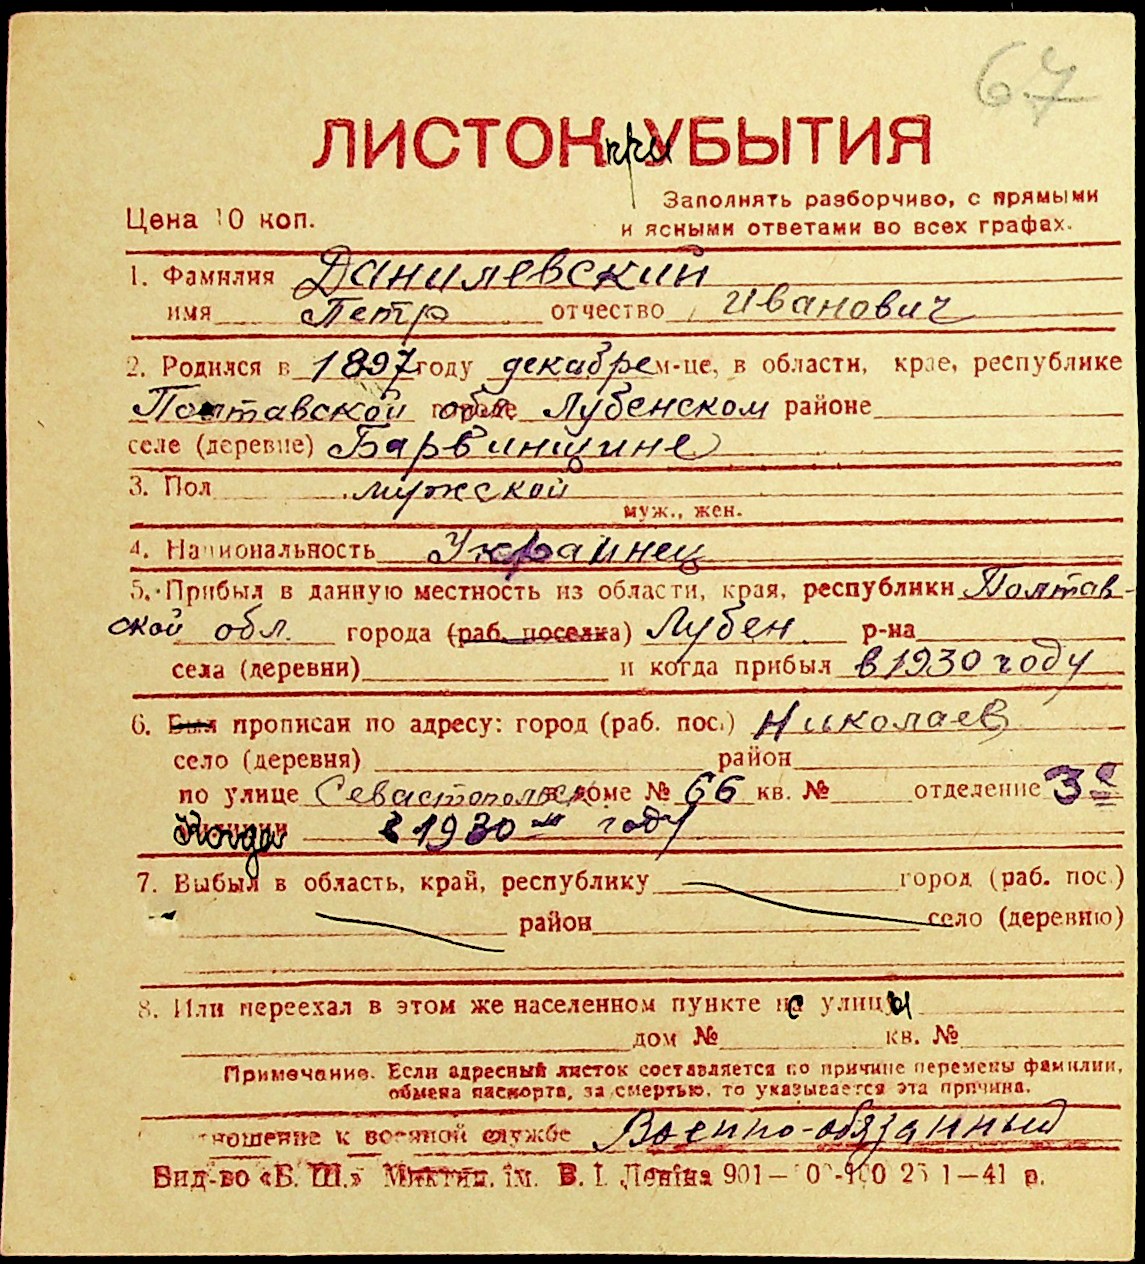 67
ЛИСТОК при УБЫТИЯ
Цена 10 коп.
Заполнять разборчиво, с прямыми
и ясными ответами во всех графах.
1. Фамилия Данилевский
имя Петр отчество Иванович
2. Родился в 1897 году декабре м-це, в области, крае, республике
Полтавской обл. Лубенском районе
селе (деревне) Барвинщине
3. Пол мужской
муж., жен.
4. Национальность Украинец
5. Прибыл в данную местность из области, края, республики Полтав-
ской обл. города (раб. поселка) Лубен р-на
села (деревни) и когда прибыл в 1930 году
6. Был прописан по адресу: город (раб. пос.) Николаев
село (деревня) район
по улице Севастопольск доме № 66 кв. № отделение 3е
Когда в 1930 м году
7. Выбыл в область, край, республику город (раб. пос.)
район село (деревню)
8. Или переехал в этом же населенном пункте с улицы
дом № кв. №
Примечание. Если адресный листок составляется по причине перемены фамилии,
обмена паспорта, за смертью, то указывается эта причина.
ношение к военной службе Военно-обязанный
Вид-во «Б. Ш.» ім. В. І. Леніна 901— 1—41 р.